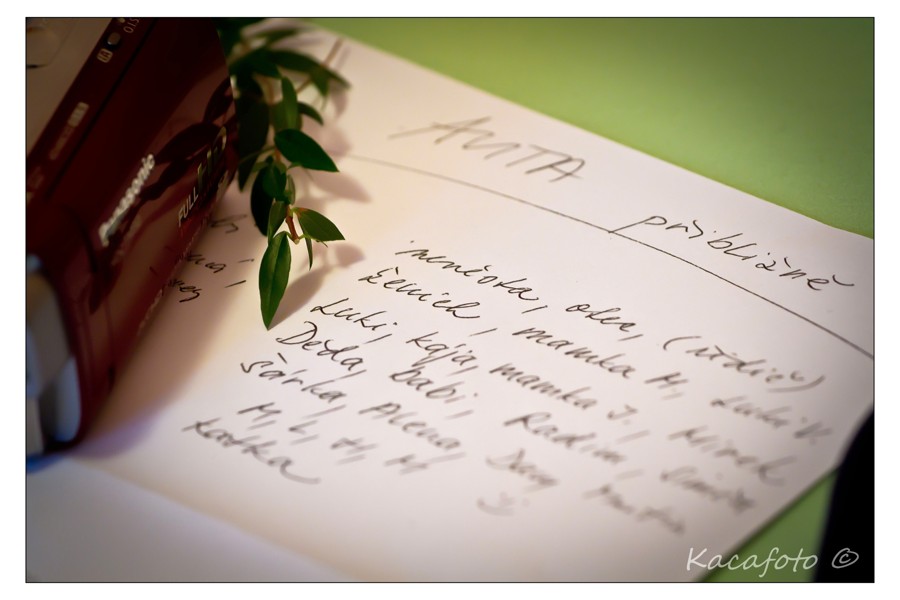 Panasonic
FULL HD
AUTA
přibližně
nevěsta, otec, (řidič)
ženich, mamka M, Lukí V.
Lukí, Kája, mamka J. Mirek
Děda, babi, Radim,
Šárka, Alena, Dany
M, L, H, M
Katka
Kacafoto ©